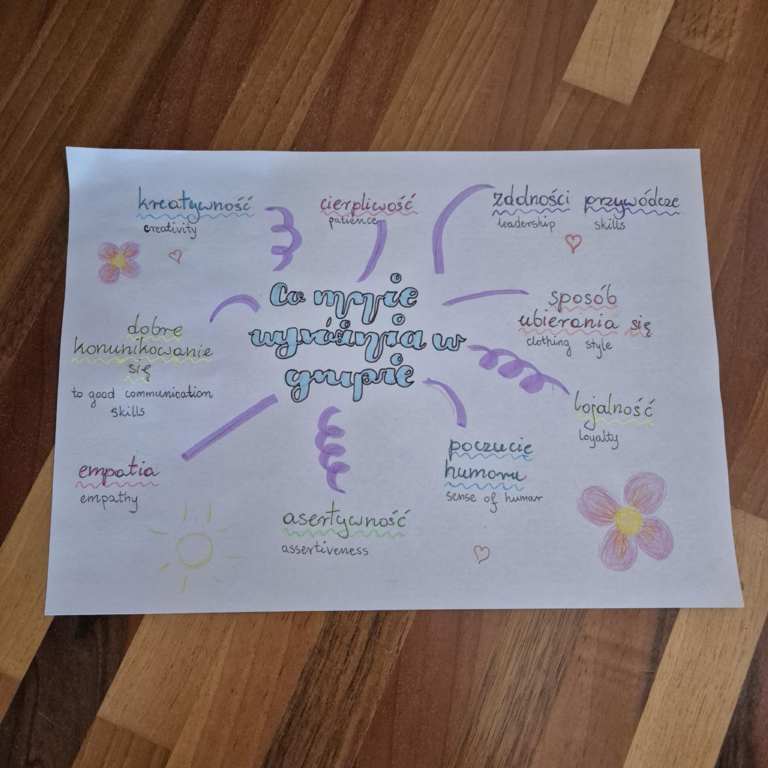 kreatywność
creativity
cierpliwość
patience
zdolności przywódcze
leadership skills
Co mnie
wyróżnia w
grupie
sposób
ubierania się
clothing style
dobre
komunikowanie
się
to good communication
skills
lojalność
loyalty
empatia
empathy
poczucie
humoru
sense of humor
asertywność
assertiveness